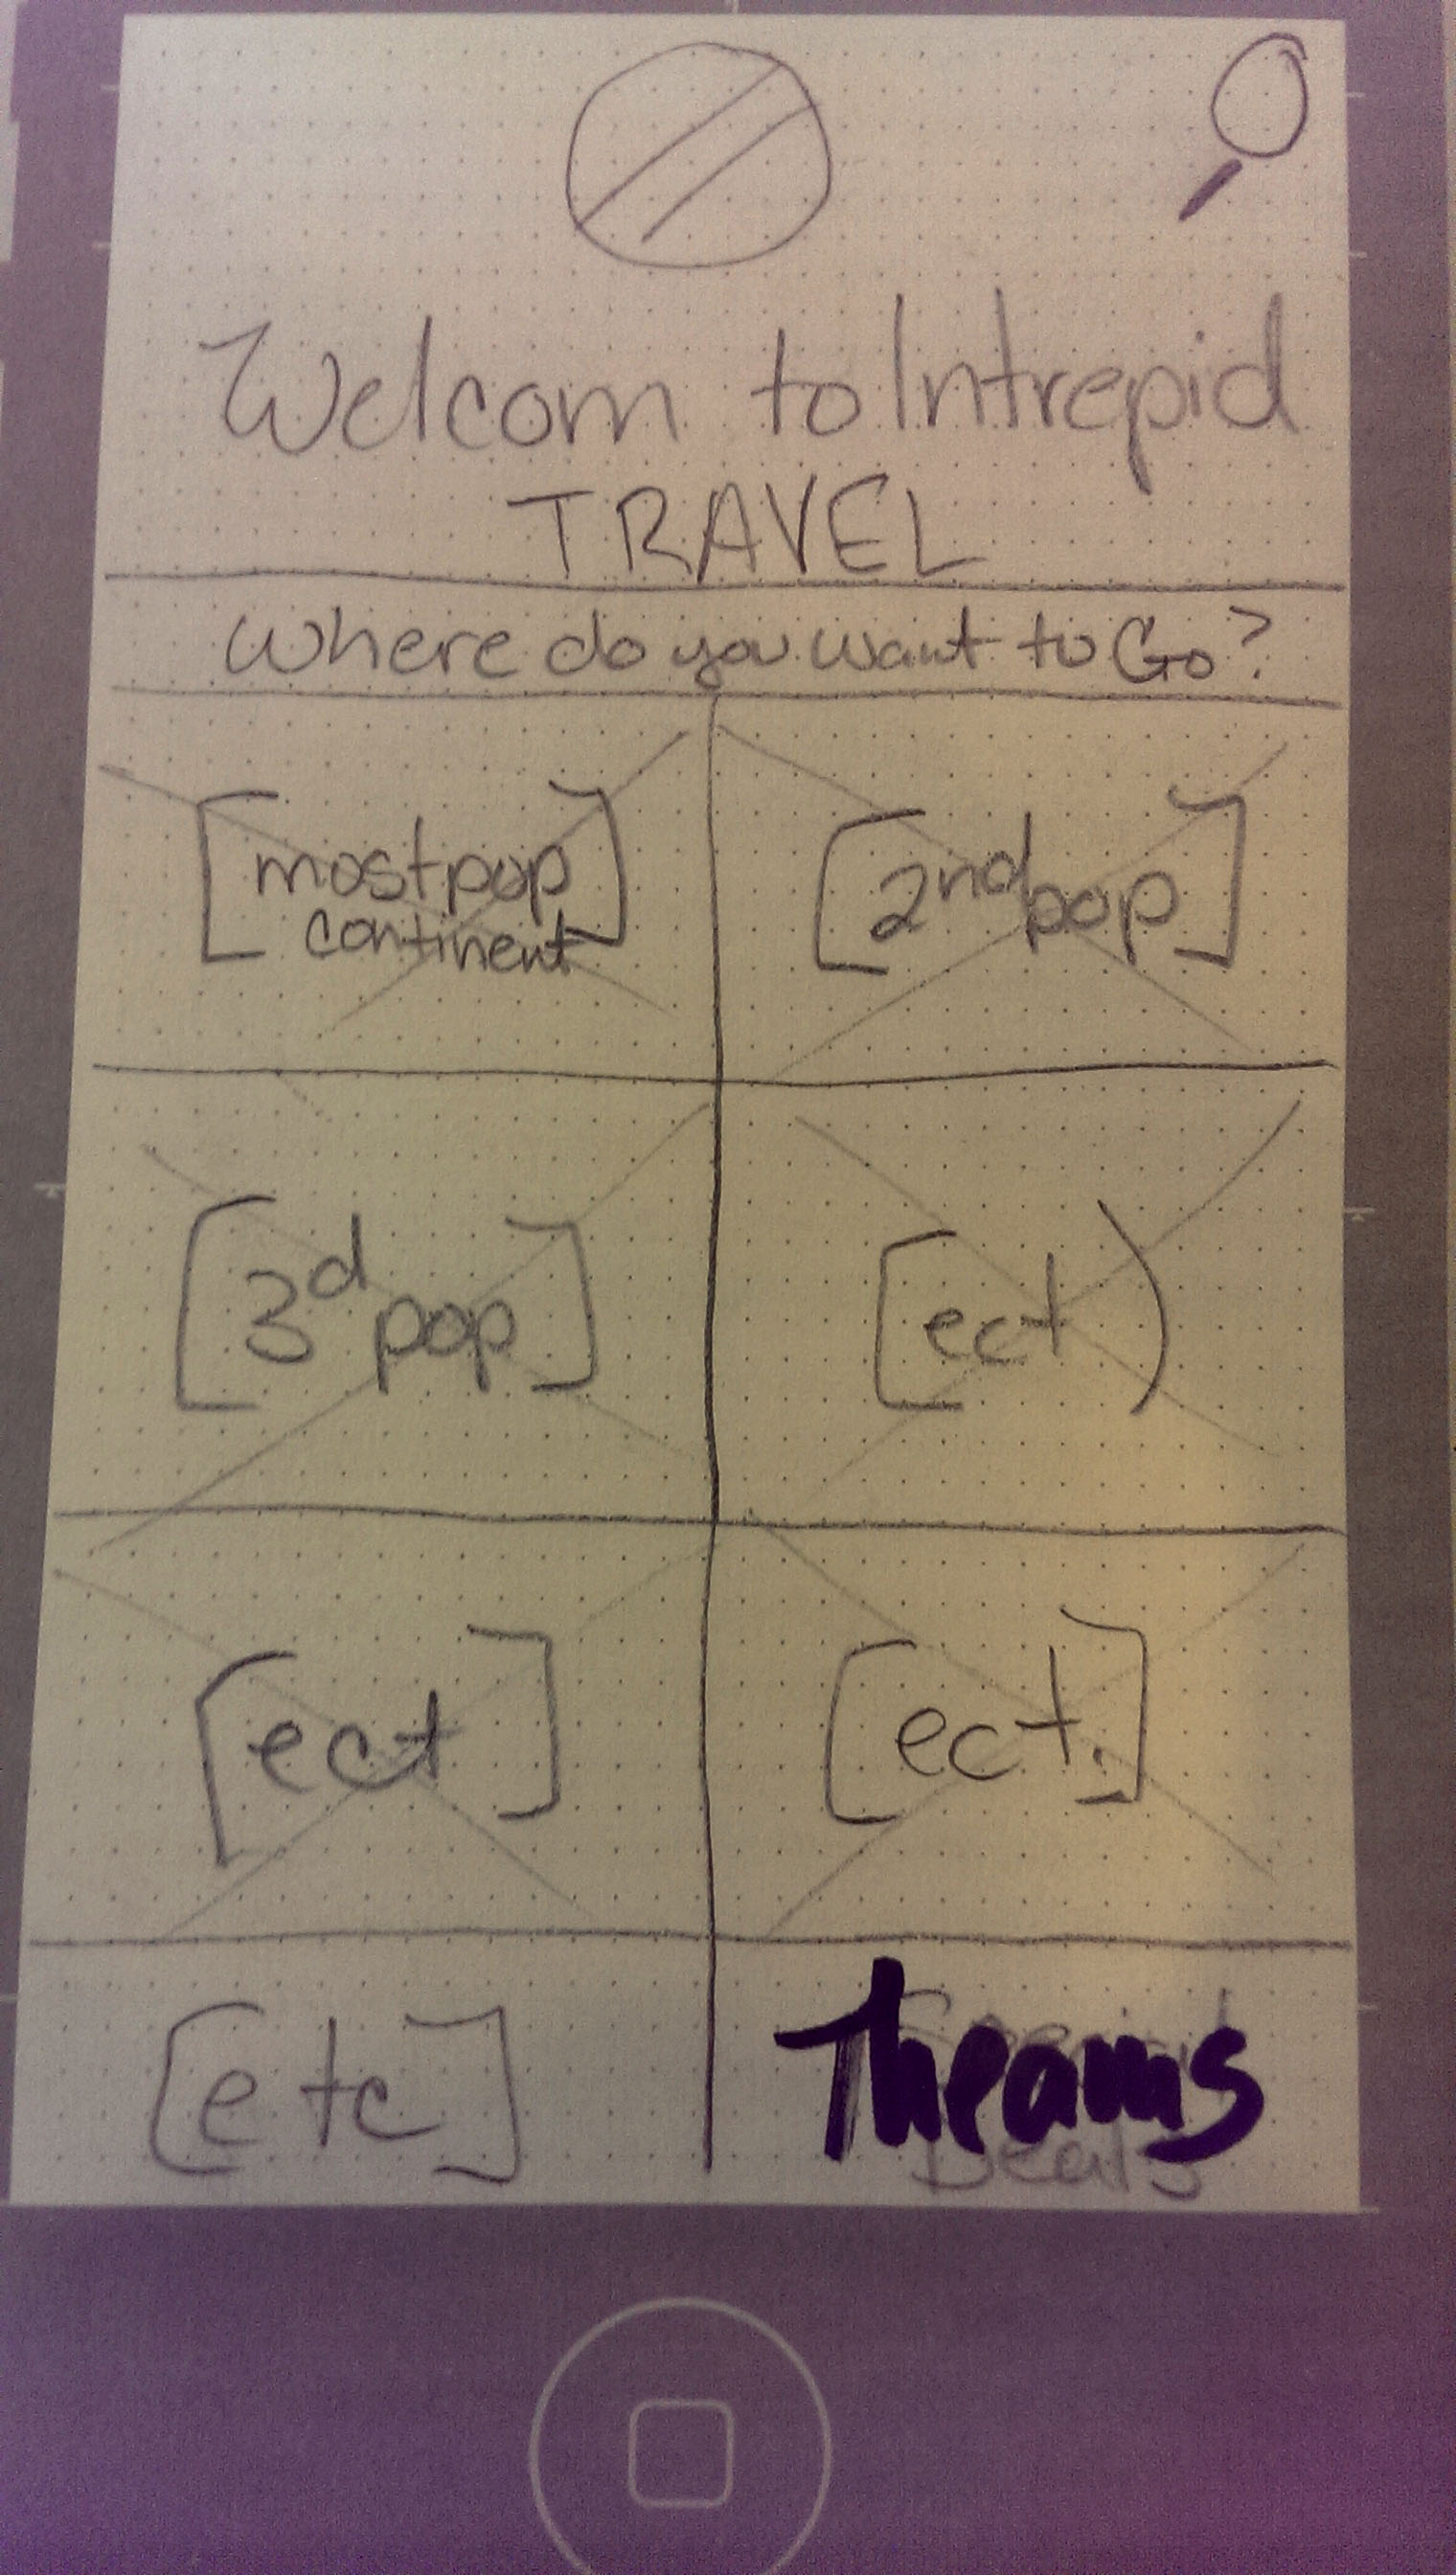 Welcom to Intrepid
TRAVEL
Where do you want to Go?
[most pop
continent]
[2nd pop]
[3d pop]
[ect)
[ect]
[ect.]
[etc]
Theams
Deals